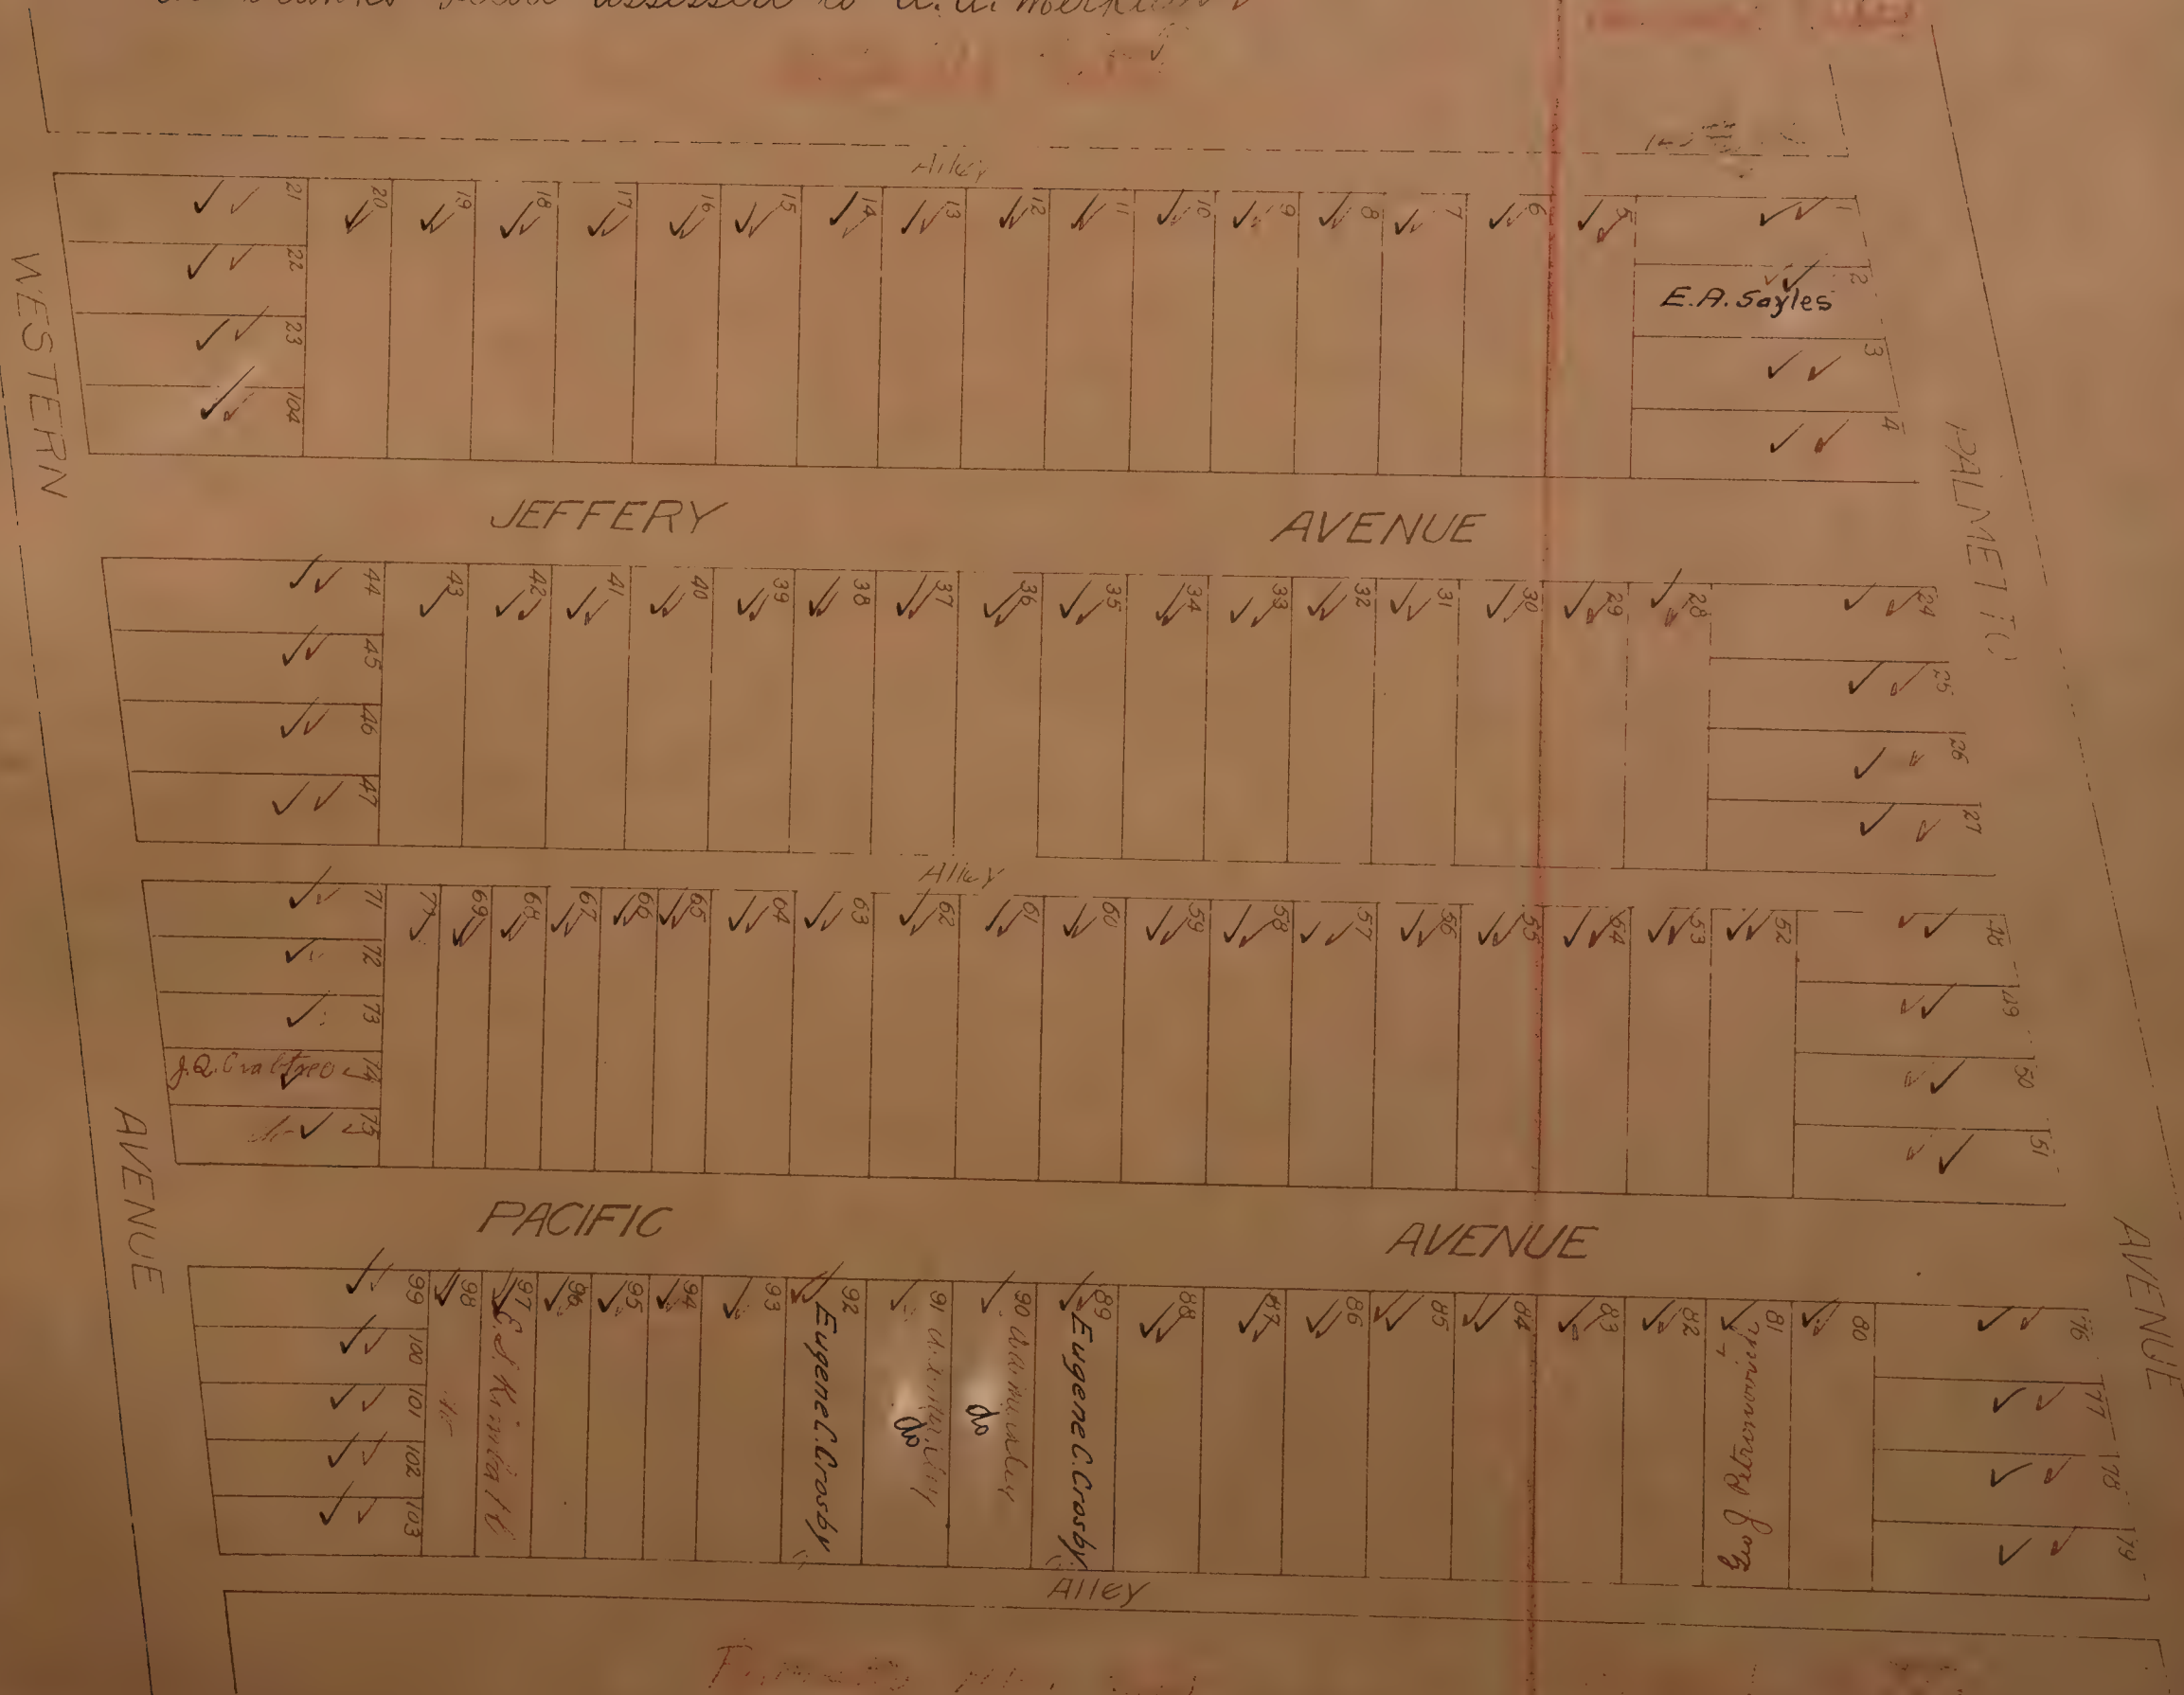 assessed to
Alley
21 20 19 18 17 16 15 14 13 12 11 10 9 8 7 6 5 1
22 2
E.A. Sayles
23 3
104 4
WESTERN
PALMETTO
JEFFERY AVENUE
44 43 42 41 40 39 38 37 36 35 34 33 32 31 30 29 28 24
45 25
46 26
47 27
Alley
71 69 68 67 66 65 64 63 62 61 60 59 58 57 56 55 54 53 52 48
72 49
73 50
J.Q. Crabtree 74
75 51
AVENUE
PACIFIC AVENUE
AVENUE
99 98 97 96 95 94 93 92 91 90 89 88 87 86 85 84 83 82 81 80 76
100 77
101 78
102 79
103
Eugene C. Crosby
do
do
Eugene C. Crosby
Geo J.
Alley